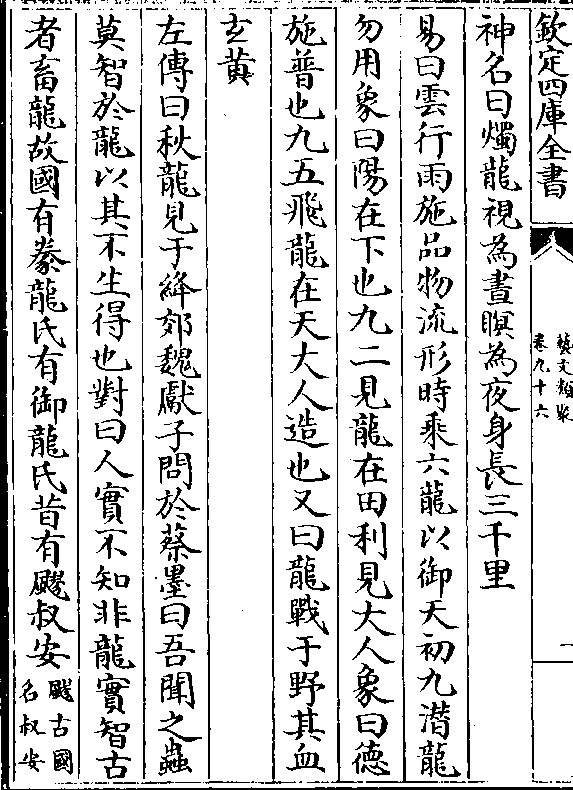 欽定四庫全書
藝文類聚
卷九十六
一
神名曰燭龍視為晝瞑為夜身長三千里
易曰雲行雨施品物流形時乘六龍以御天初九潛龍
勿用象曰陽在下也九二見龍在田利見大人象曰德
施普也九五飛龍在天大人造也又曰龍戰于野其血
玄黃
左傳曰秋龍見于絳郊魏獻子問於蔡墨曰吾聞之蟲
莫智於龍以其不生得也對曰人實不知非龍實智古
者畜龍故國有豢龍氏有御龍氏昔有飂叔安
飂古國
名叔安